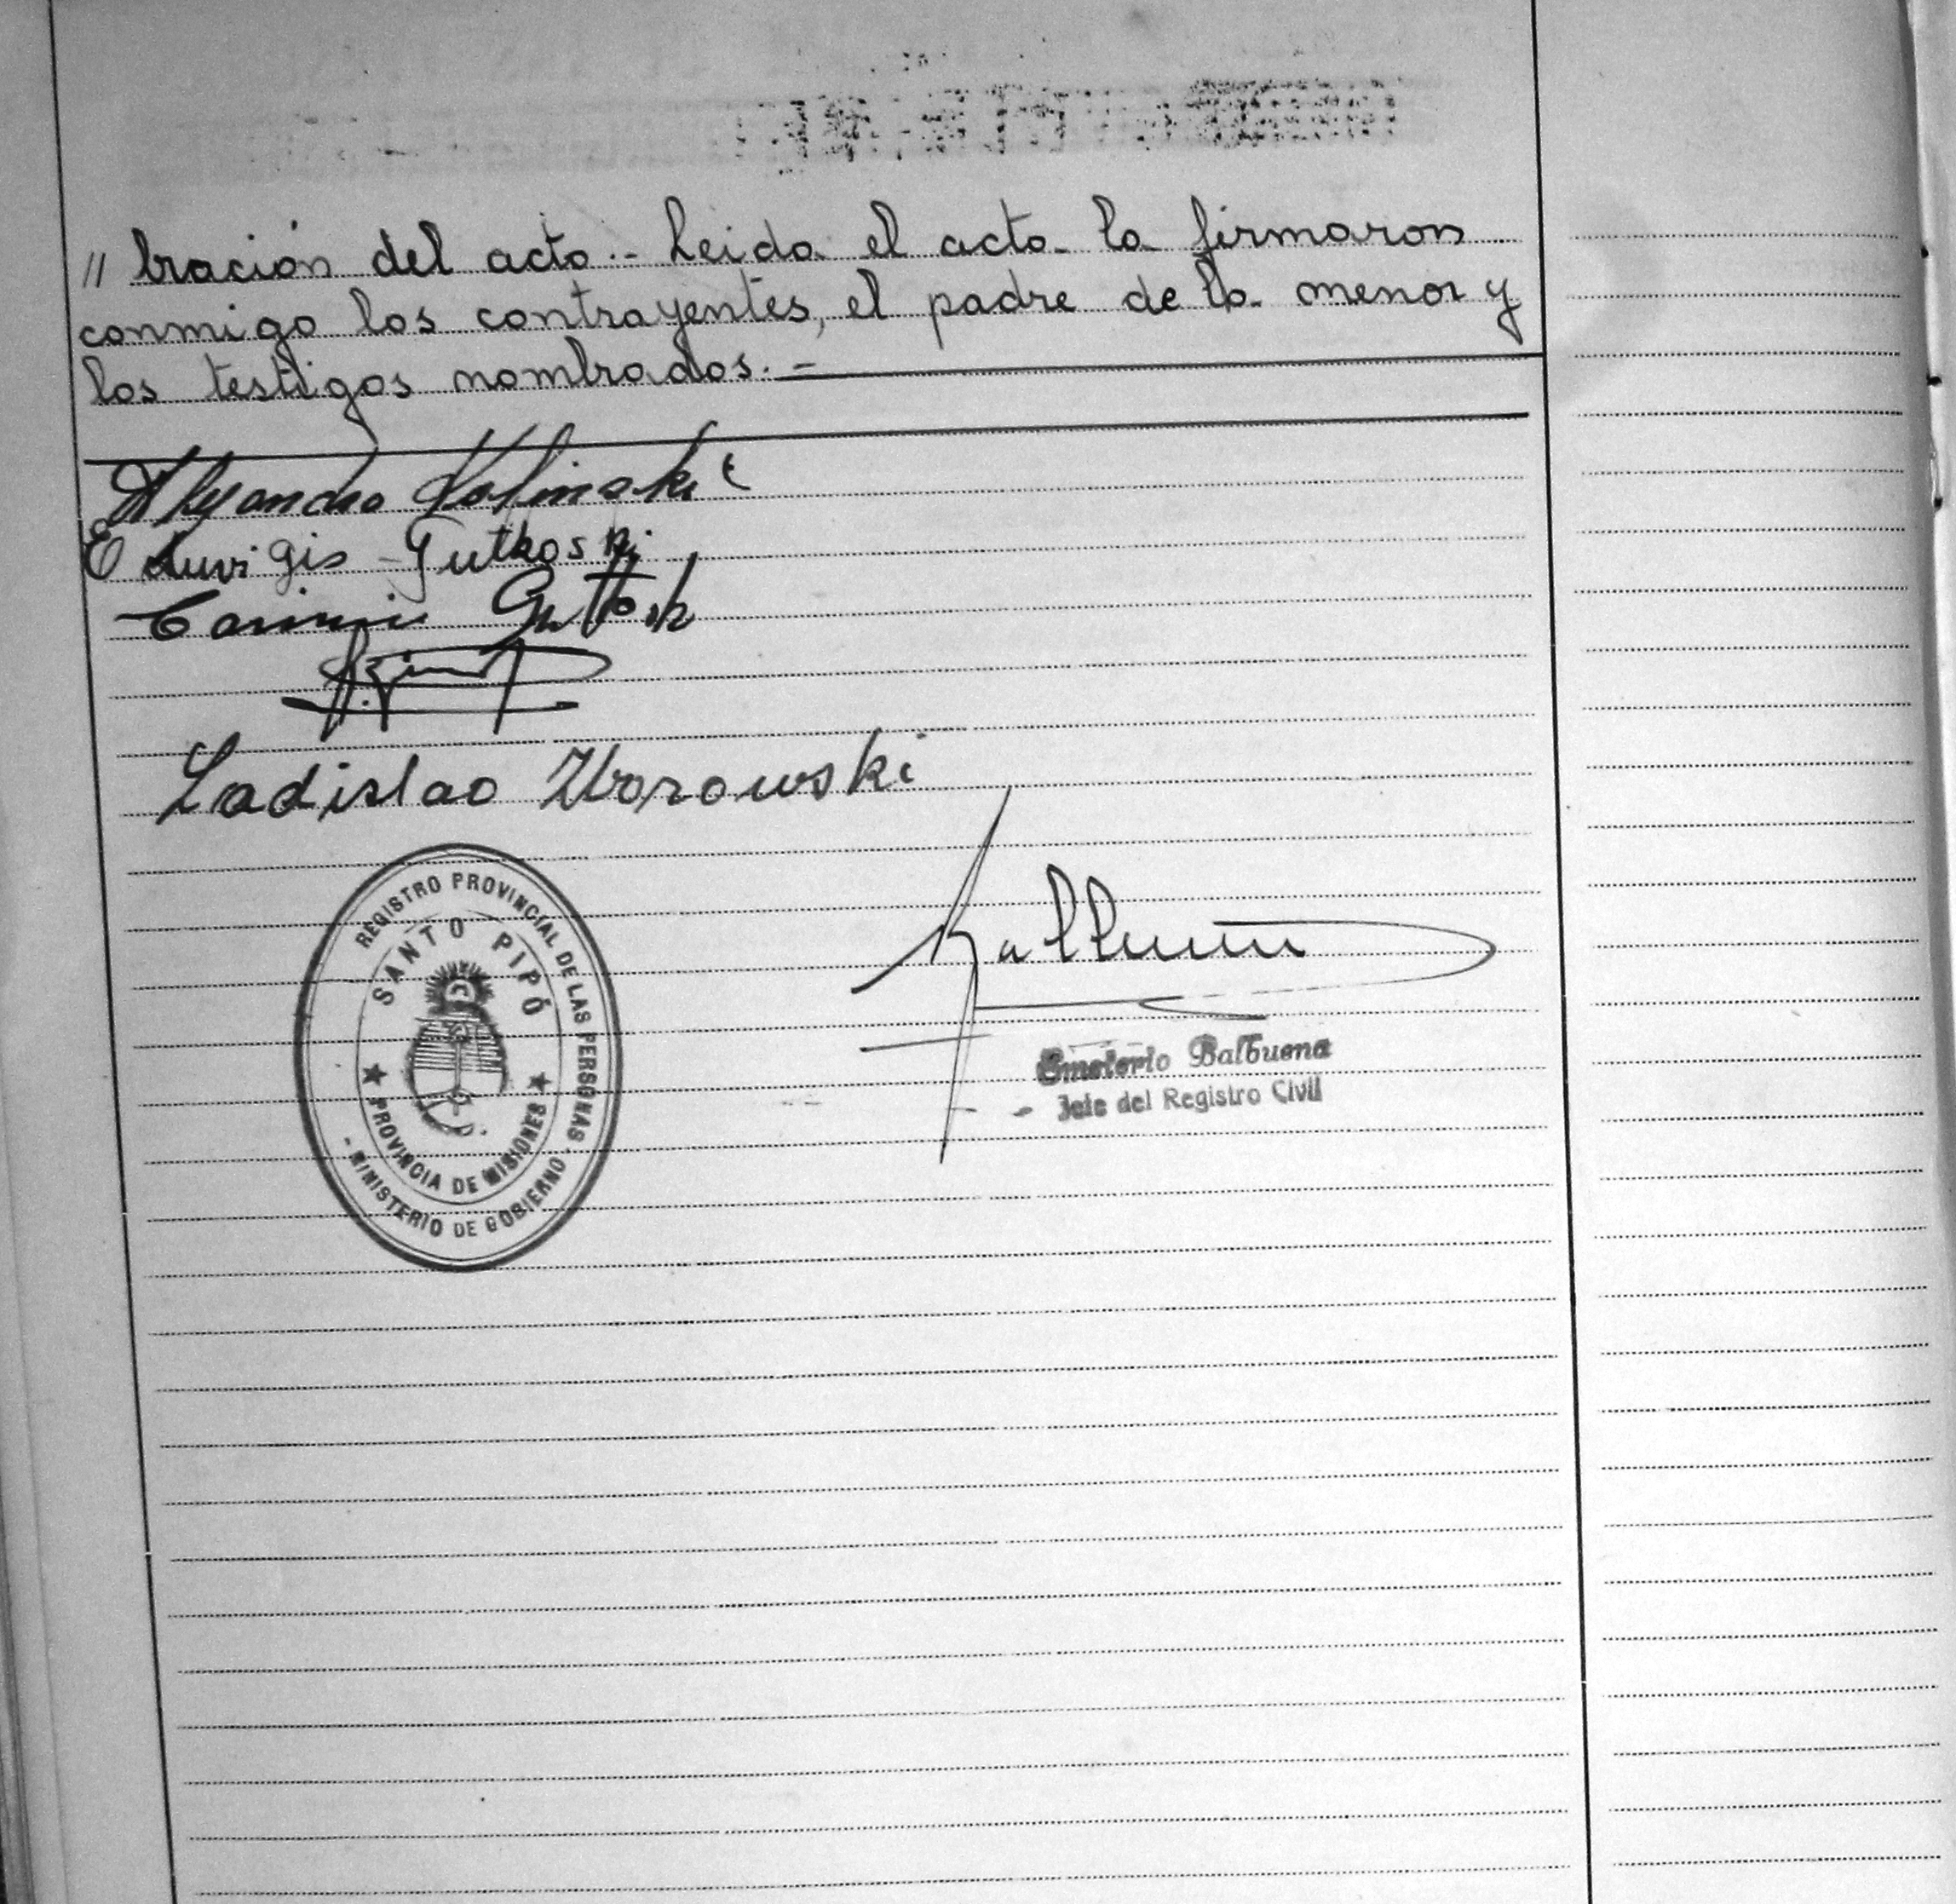 // bración del acto.- Leida el acta la firmaron
conmigo los contrayentes, el padre de la menor y
los testigos nombrados.-
Alejandro
Eduvigis Gutkoski
Casimiro
Ladislao Worowski
REGISTRO PROVINCIAL DE LAS PERSONAS
SANTO PIPÓ
PROVINCIA DE MISIONES
- MINISTERIO DE GOBIERNO -
Emeterio Balbuena
Jefe del Registro Civil